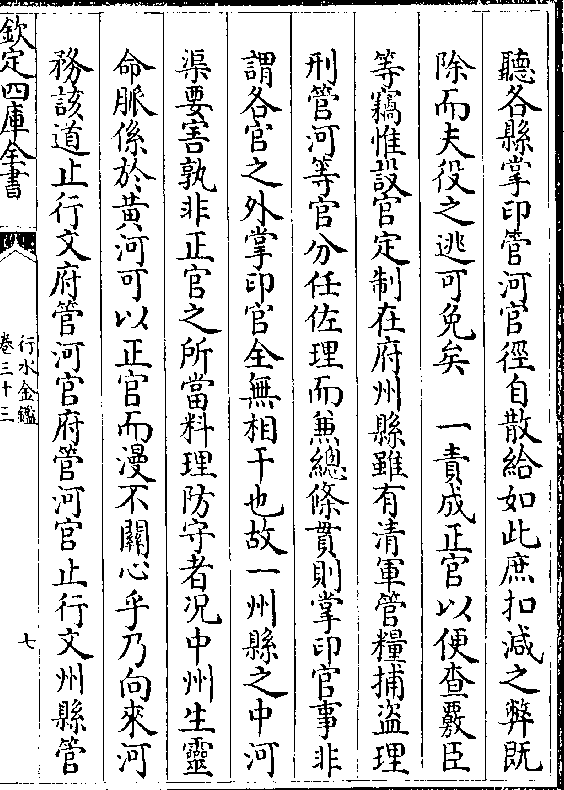 聽各縣掌印管河官徑自散給如此庶扣減之弊既
除而夫役之逃可免矣　一責成正官以便查覈臣
等竊惟設官定制在府州縣雖有清軍管糧捕盜理
刑管河等官分任佐理而兼總條貫則掌印官事非
謂各官之外掌印官全無相干也故一州縣之中河
渠要害孰非正官之所當料理防守者况中州生靈
命脈係於黄河可以正官而漫不關心乎乃向來河
務該道止行文府管河官府管河官止行文州縣管
欽定四庫全書
行水金鑑
卷三十三
七